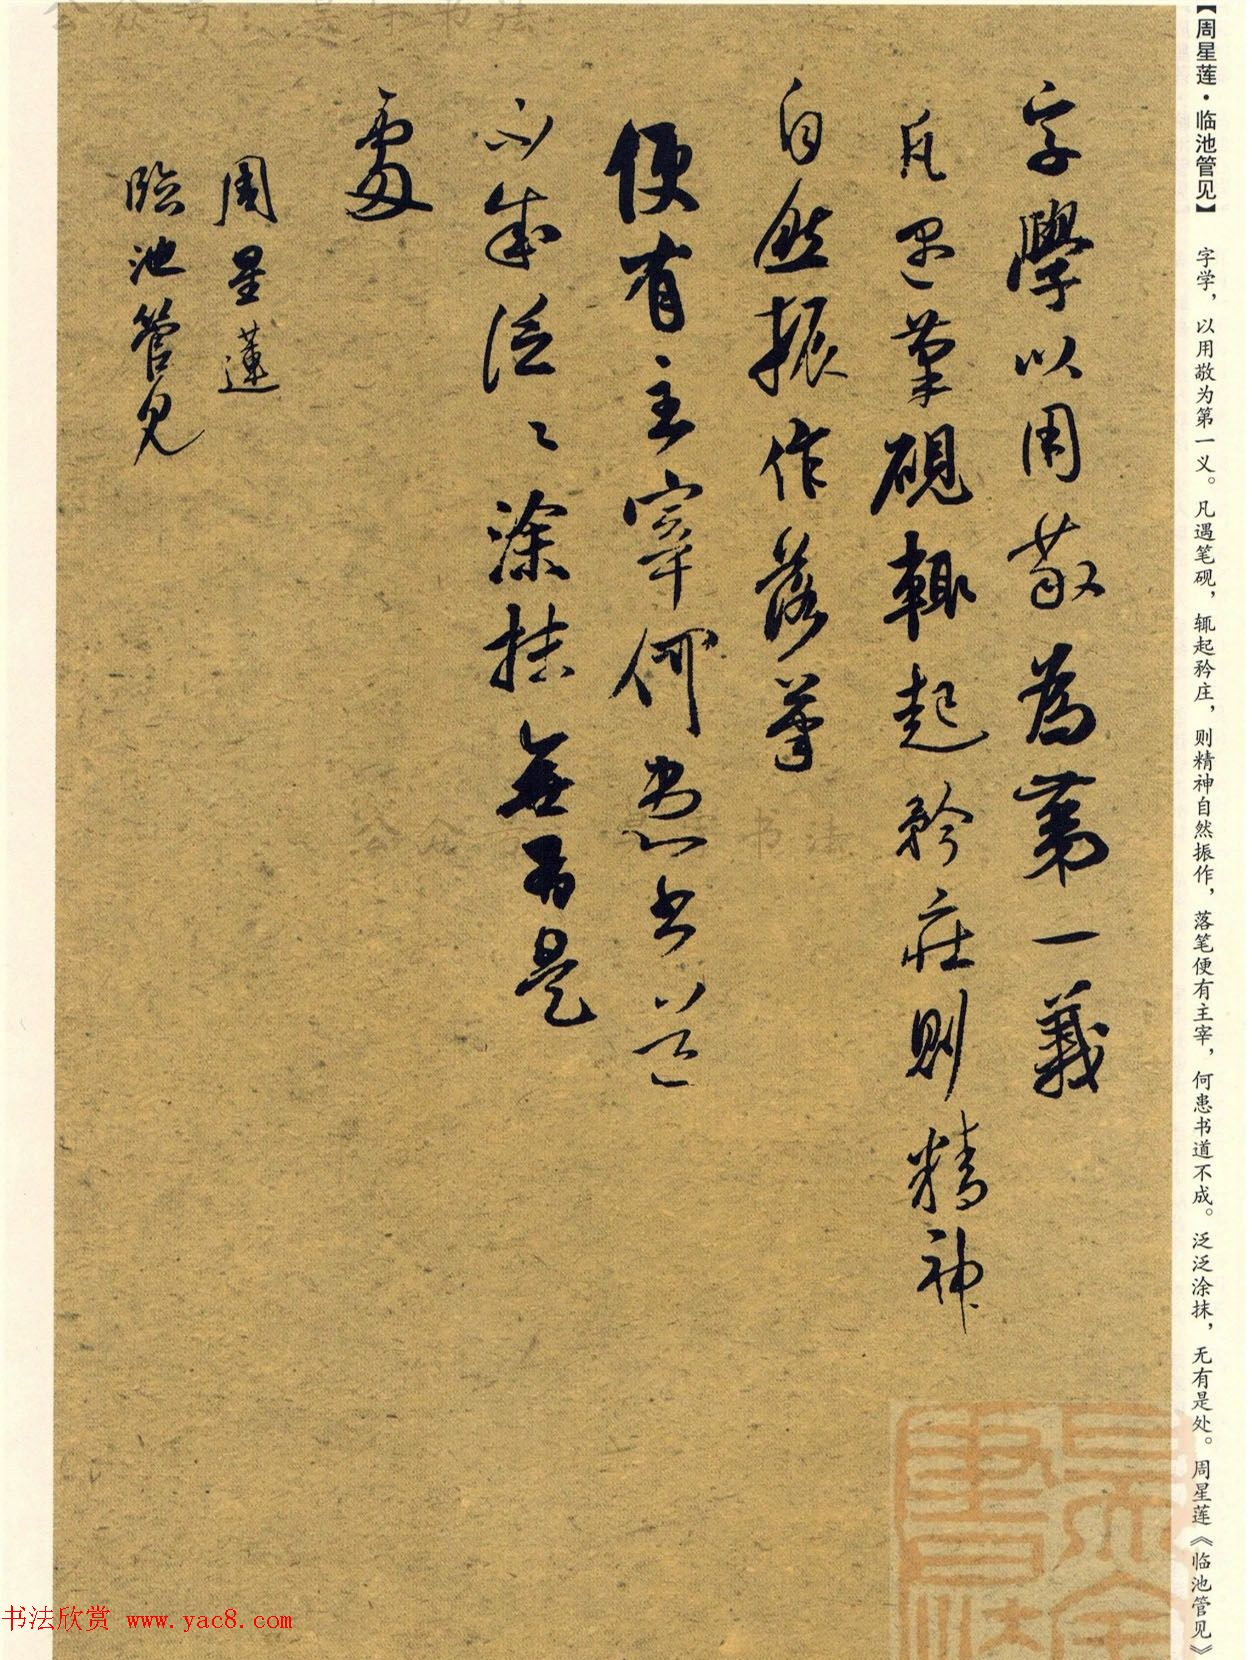 【周星莲·临池管见】 字学，以用敬为第一义。凡遇笔砚，辄起矜庄，则精神自然振作，落笔便有主宰，何患书道不成。泛泛涂抹，无有是处。周星莲《临池管见》
字學以用敬為第一義
凡遇筆硯輒起矜莊則精神
自然振作落筆
便有主宰何患書道
不成泛〻涂抹無有是
處
周星蓮
臨池管見
公众号：吴宇书法
公众号：吴宇书法
书法欣赏 www.yac8.com